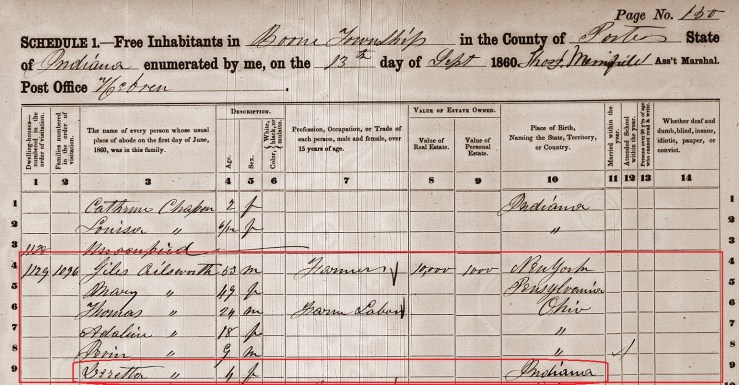 Page No. 150
SCHEDULE 1.—Free Inhabitants in Boone Township in the County of Porter State
of Indiana enumerated by me, on the 13th day of Sept 1860. Thos. Merrifield Ass't Marshal.
Post Office Hebron.
Dwelling-houses—numbered in the order of visitation.
Families numbered in the order of visitation.
The name of every person whose usual place of abode on the first day of June, 1860, was in this family.
DESCRIPTION.
Age.
Sex.
Color, White, black, or mulatto.
Profession, Occupation, or Trade of each person, male and female, over 15 years of age.
VALUE OF ESTATE OWNED.
Value of Real Estate.
Value of Personal Estate.
Place of Birth, Naming the State, Territory, or Country.
Married within the year.
Attended School within the year.
Persons over 20 y'rs of age who cannot read & write.
Whether deaf and dumb, blind, insane, idiotic, pauper, or convict.
1 2 3 4 5 6 7 8 9 10 11 12 13 14
1 Cathrine Chapen 2 f Indiana
2 Louisa " 6/12 f "
3 1128 Unoccupied
4 1129 1096 Giles Ailsworth 53 m Farmer 10,000 1000 New York 4
5 Mary " 49 f Pensylvania 5
6 Thomas " 24 m Farm Labor Ohio 6
7 Adaline " 18 f " 7
8 " 9 m " 8
9 " 4 f Indiana 9